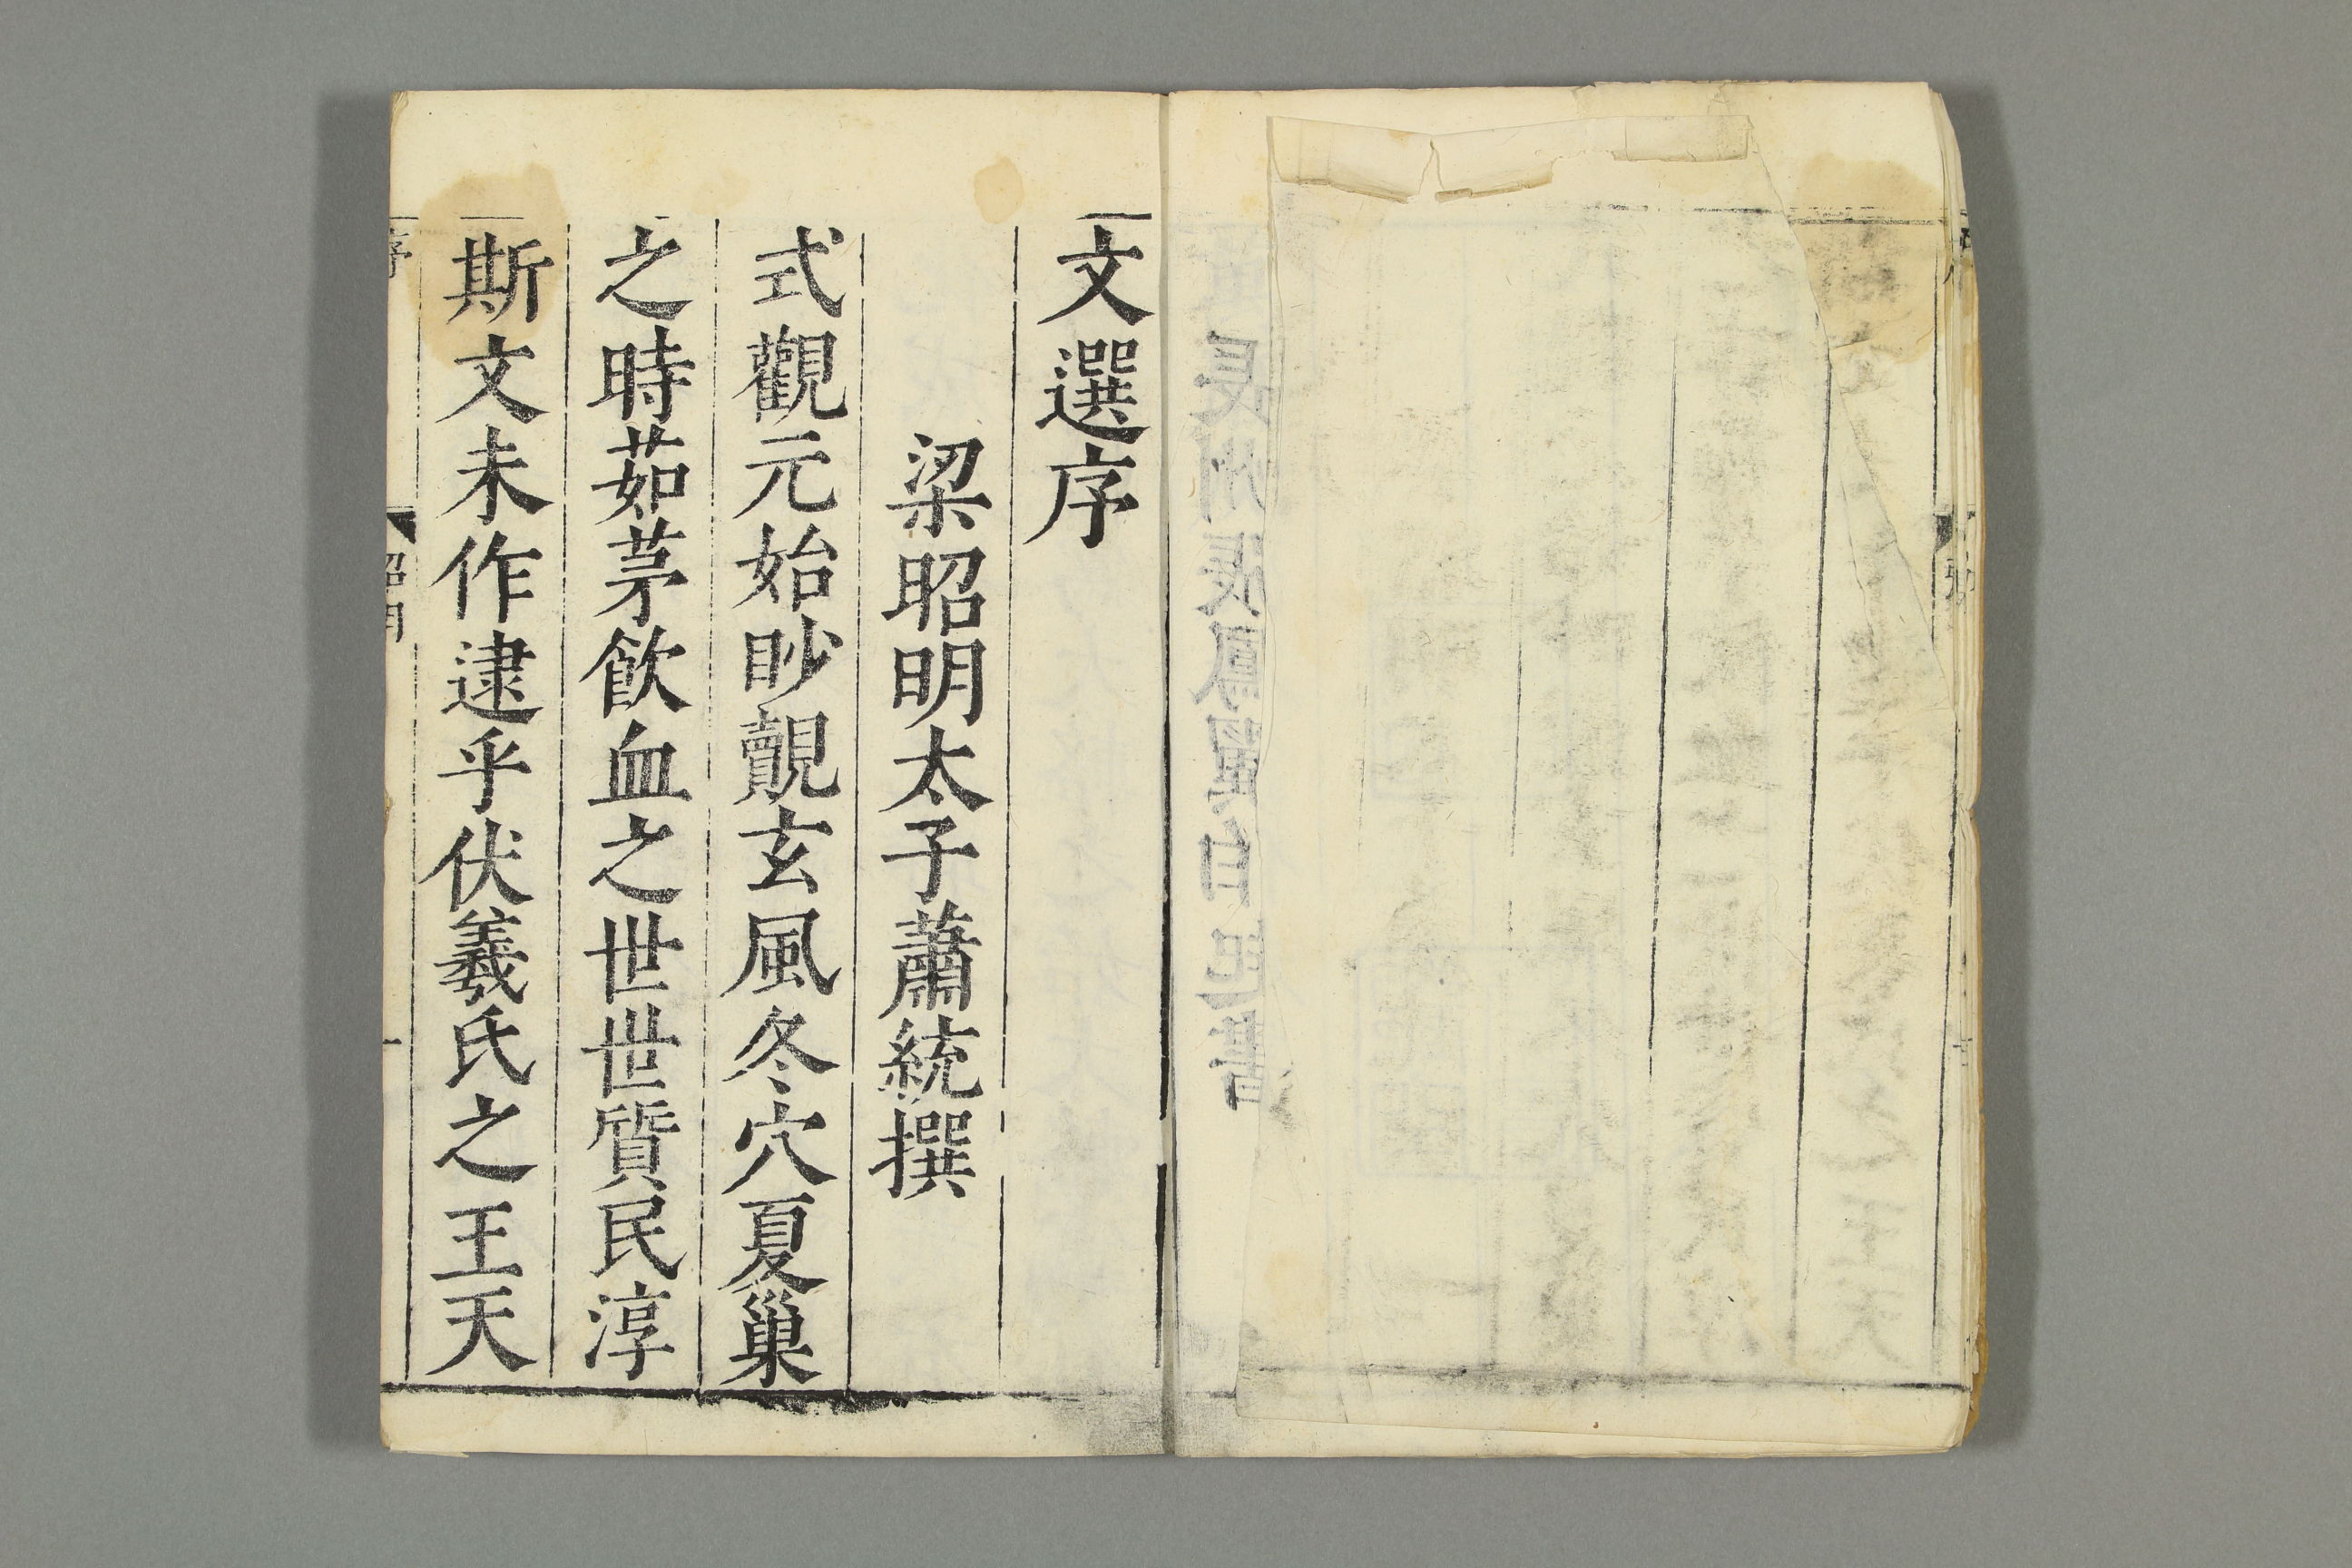 文選序
梁昭明太子蕭統撰
式觀元始眇覿玄風冬穴夏巢
之時茹茅飲血之世世質民淳
斯文未作逮乎伏羲氏之王天